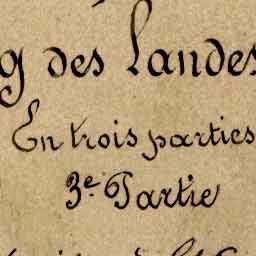 g des Landes
En trois parties
3e. Partie